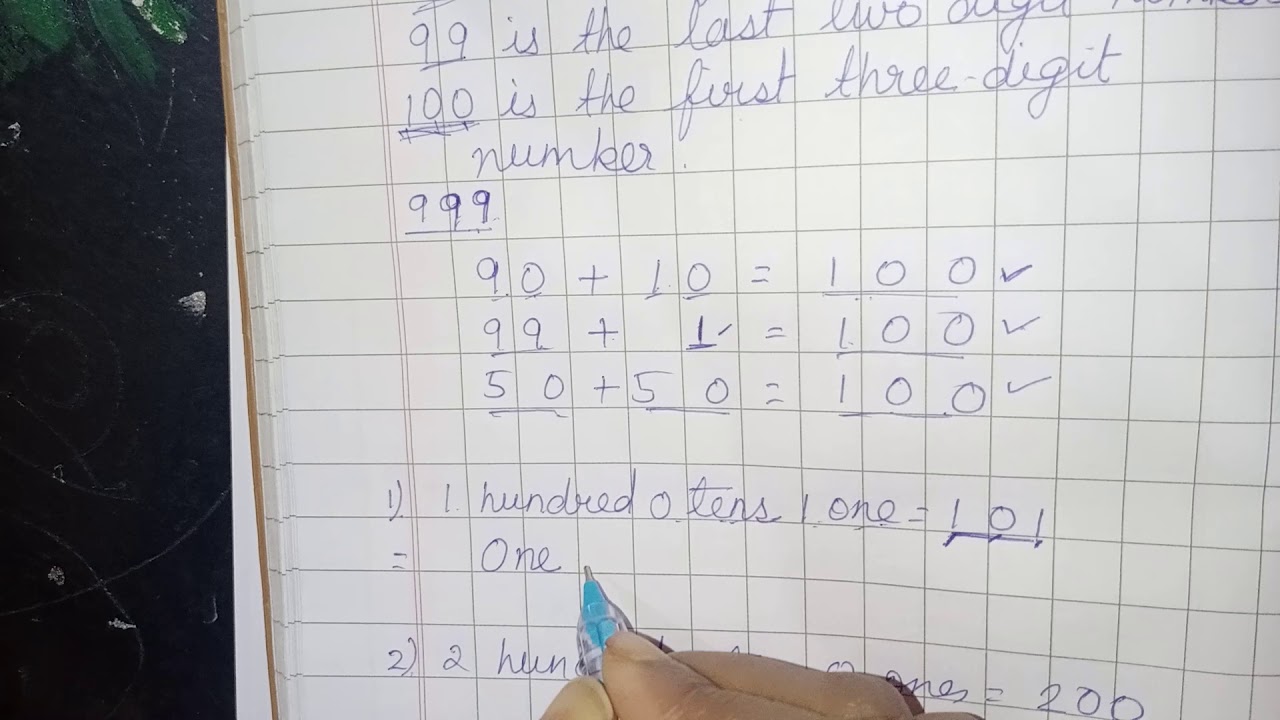 99 is the last two digit
100 is the first three-digit
number.
999
90 + 10 = 100 ✓
99 + 1 = 100 ✓
50 + 50 = 100 ✓
1) 1 hundred 0 tens 1 one = 101
= One
2) 2 ones = 200